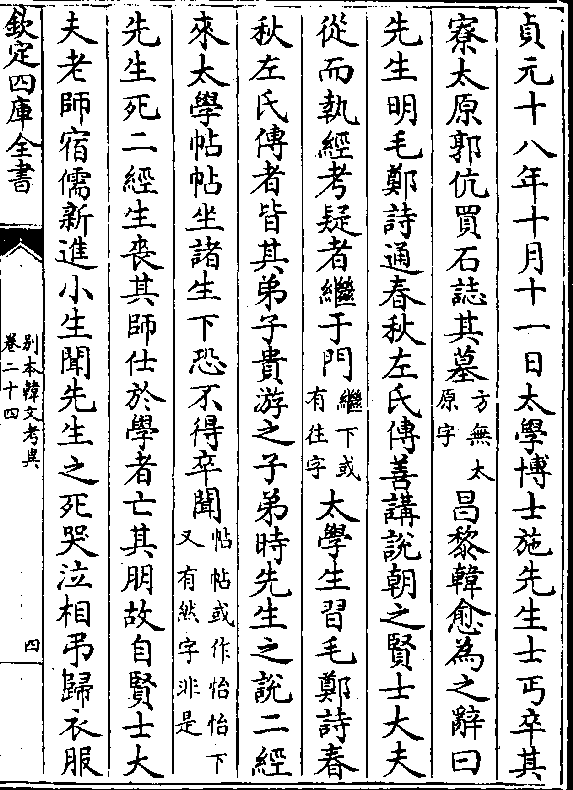 貞元十八年十月十一日太學博士施先生士丐卒其
寮太原郭伉買石誌其墓方無太原字昌黎韓愈為之辭曰
先生明毛鄭詩通春秋左氏傳善講說朝之賢士大夫
從而執經考疑者繼于門繼下或有往字太學生習毛鄭詩春
秋左氏傳者皆其弟子貴游之子弟時先生之說二經
來太學帖帖坐諸生下恐不得卒聞帖帖或作怡怡下又有然字非是
先生死二經生喪其師仕於學者亡其朋故自賢士大
夫老師宿儒新進小生聞先生之死哭泣相弔歸衣服
欽定四庫全書
別本韓文考異
卷二十四
四